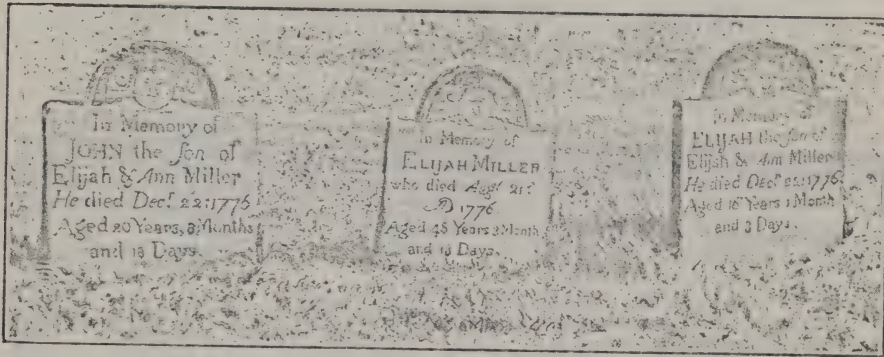 In Memory of
JOHN the ſon of
Elijah & Ann Miller
He died Decr. 22: 1776
Aged 20 Years, 8 Months
and 13 Days.
In Memory of
ELIJAH MILLER
who died Augt. 21:
D 1776
Aged 48 Years 3 Month
and 13 Days.
In Memory of
ELIJAH the ſon of
Elijah & Ann Miller
He died Decr. 22: 1776
Aged 16 Years 1 Month
and 3 Days.